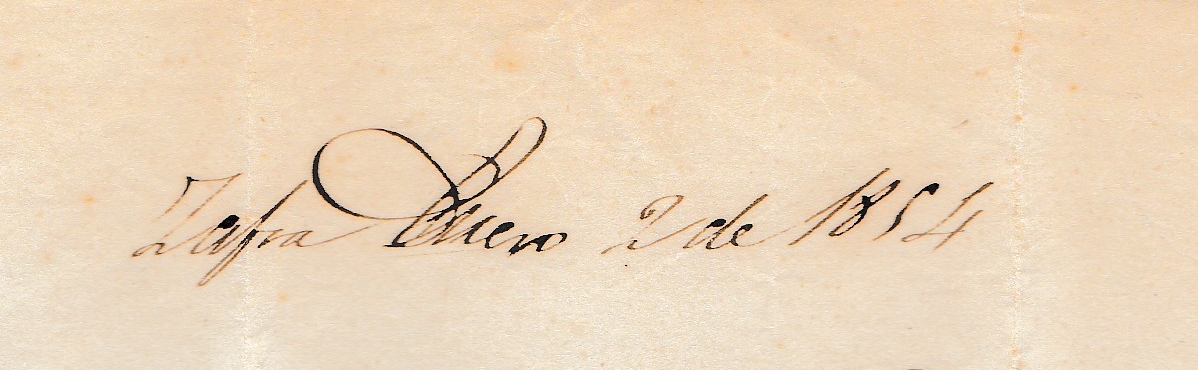 Zafra Enero 2 de 1854